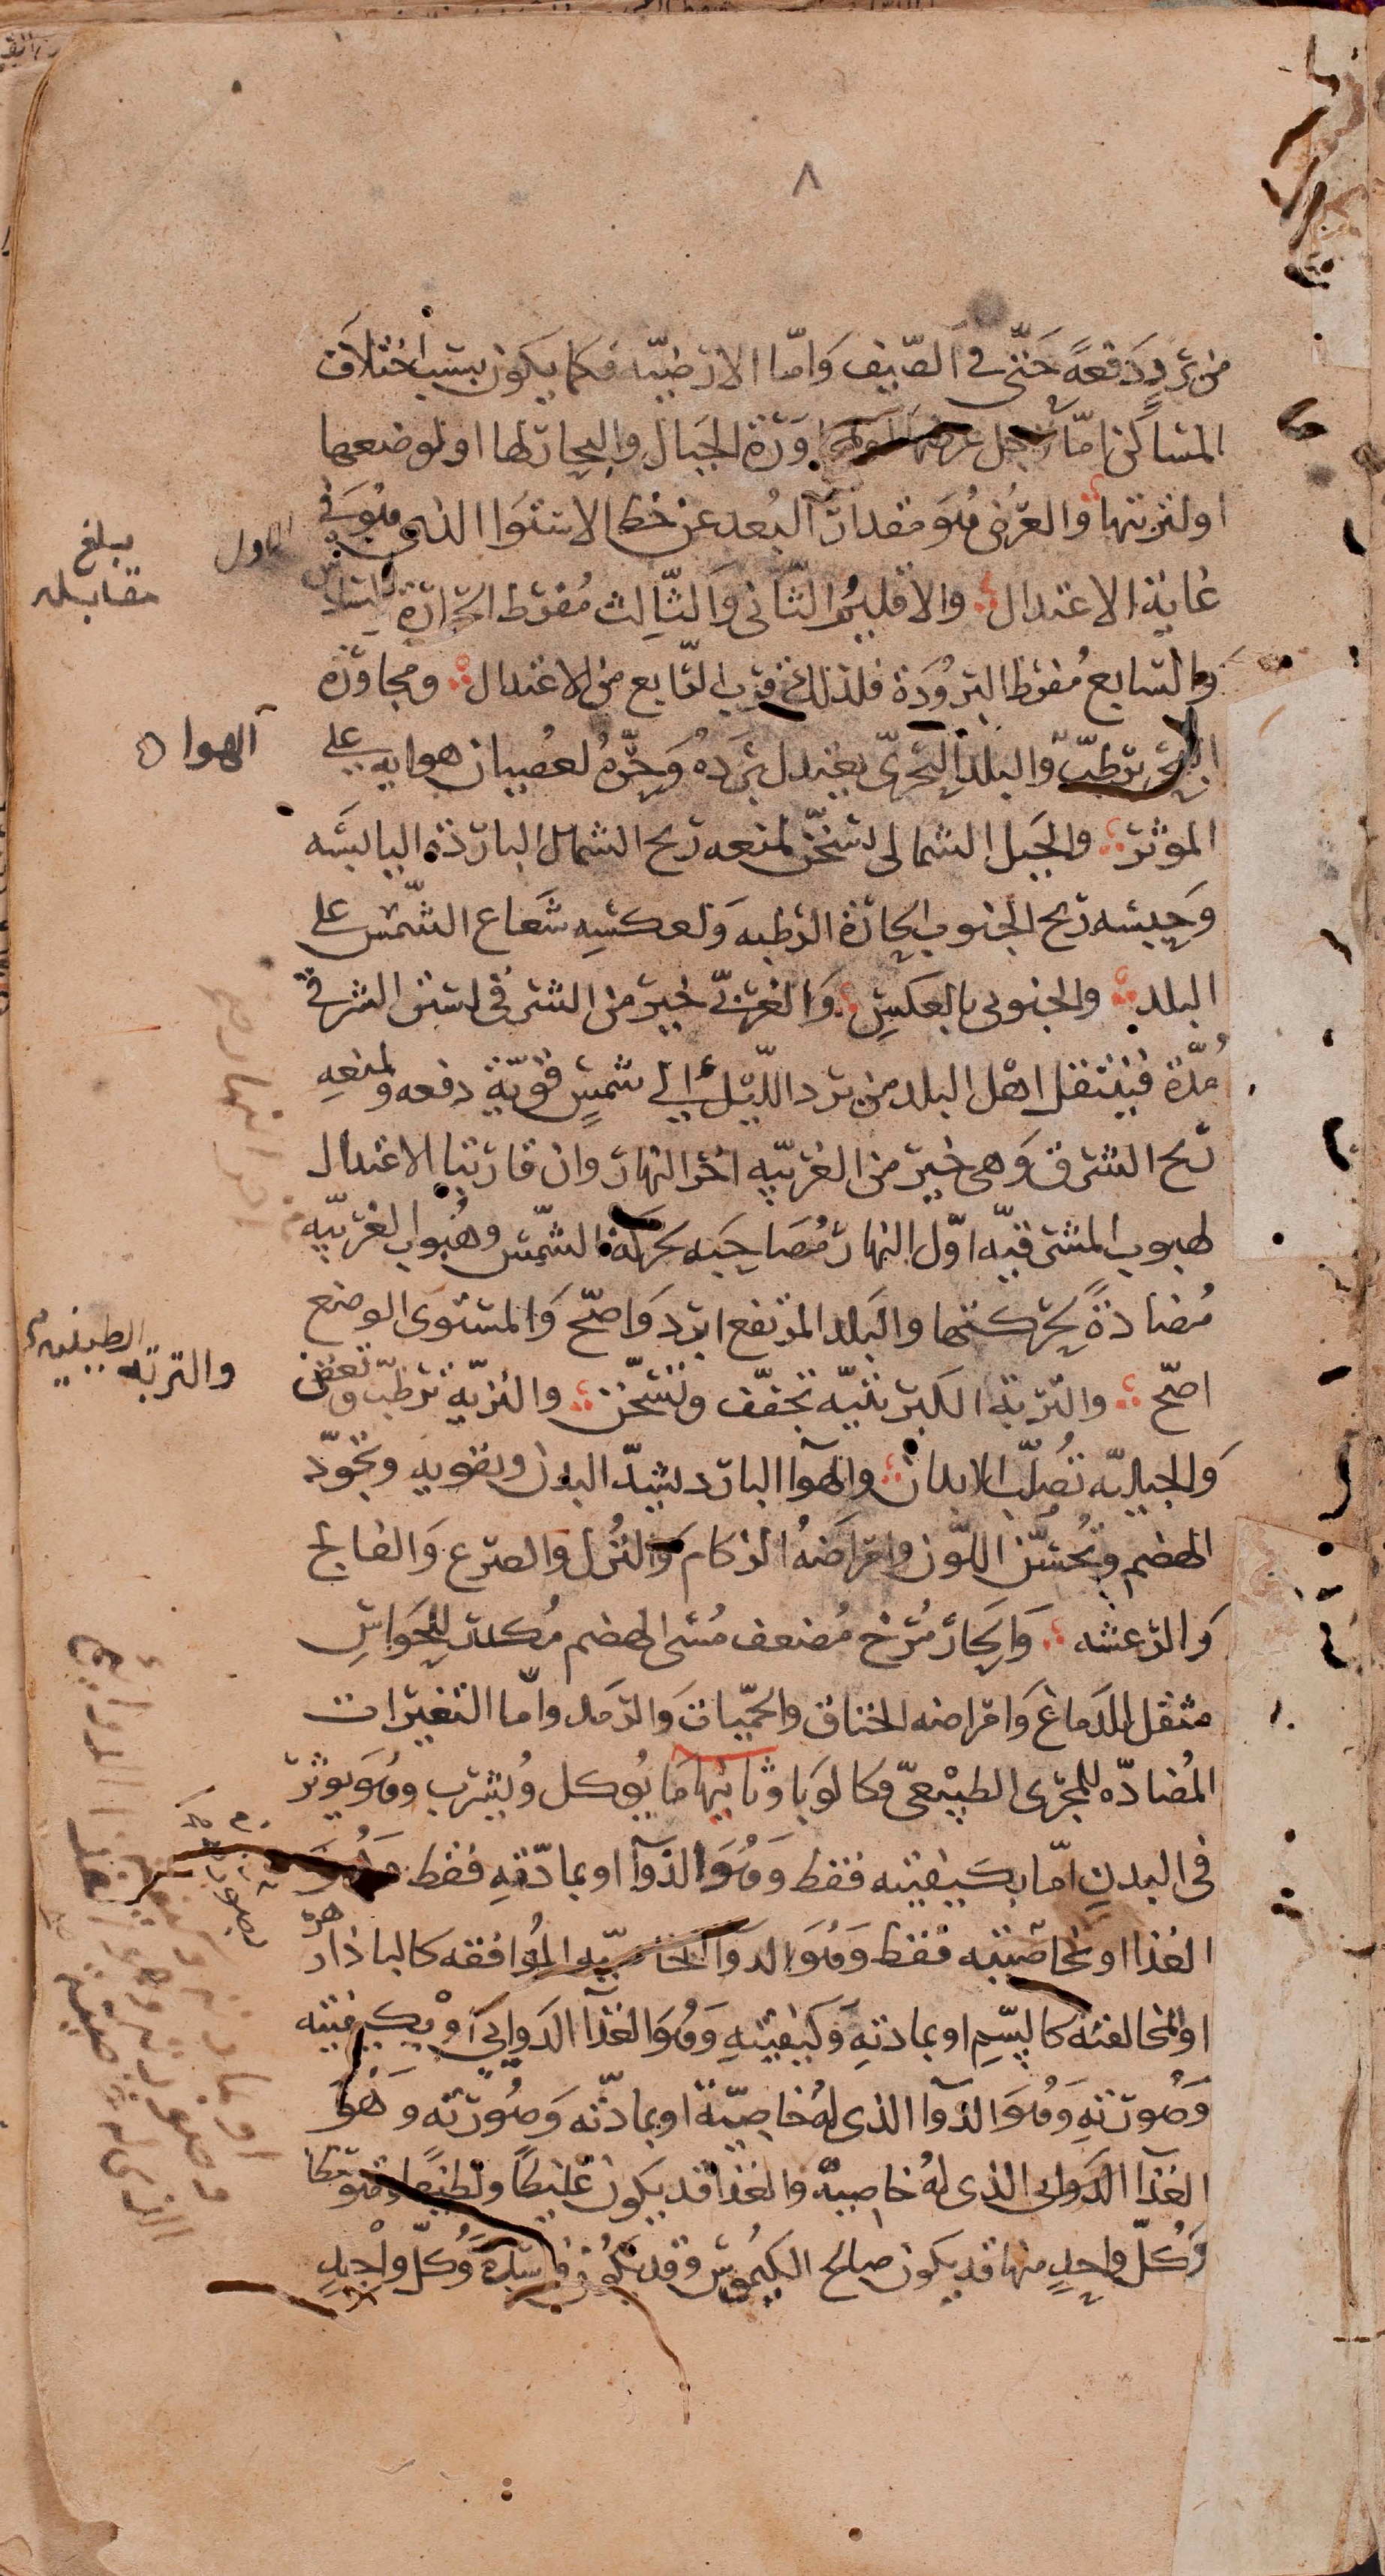 ٨
من برد دفعةً حَتّى في الصّيف وَامّا الارضيّه فكما يكون بسبب اختلاف
المساكن امّا لاجل عرضها او لمجاورة الجبال والبحار لها او لوضعها
او لتربتها والعرض هُو مقدار البُعد عن خط الاستوا الذى هُوَ في
غاية الاعتدال والاقليم الثانى وَالثّالث مُفرط الحرارة والسادس
وَالسّابع مُفرط البرُودَة فلذلك قرب الرّابع من الاعتدال ومجاورة
البحر ترطّب والبلد البحرىّ يعتدل بَردهُ وَحرّهُ لعصيان هوايه على
الموثر والجَبل الشمالى يسَخّن لمنعه ريح الشمال الباردة اليابسَه
وَحبسه ريح الجنوب الحارة الرطبه وَلعكسِه شَعاع الشّمس على
البلد والجنوبى بالعكسِ وَالغربىّ خير من الشرقى لستر الشرقى
مُدّة فينتقل اهل البلد من برد اللّيل الى شمسٍ قويّة دفعه ولمنعِهِ
ريح الشرق وَهى خير من الغربيّه اخر النهار وان قاربتا الاعتدال
لهبوب المشرقيّه اوّل النهار مُصَاحبَه لحركة الشّمس وهُبوب الغربيّه
مُضادةً لحركتها والبَلد المرتفع ابرد وَاصحّ وَالمستوى الوضع
اصحّ والتربة الكبريتيّه تجفّف وتسَخّن والنزيه ترطّب وتعفن
وَالجبليّه تُصلّب الابدان والهوآ البارد يشدّ البدن ويقويه ويجوّد
الهضم ويُحسّن اللّون وامراضهُ الزكام وَالنُزل والصرع وَالفالج
وَالرّعشه وَالحارّ مُرخ مُضعف مُسى الهضم مُكدر للحَواسِ
مثقل للدَماغ وَامراضه الخناق والحمّيات وَالرّمد وامّا التغيرات
المُضادّه للمجرى الطبيعىّ فكالوَبا وثانيها مَا يوكل ويُشرب وهُوَ يوثر
فى البدنِ امّا بكيفيته فقط وَهُوَ الدوآ او بمادّتهِ فقط وَهُوَ
الغذا او بخاصّيته فقط وَهُوَ الدوآ المُوافقه كالبادزهر
او المخالفه كالسّمِ او بمادتهِ وَكيفيتهِ وَهُوَ الغذآ الدَوايى اوْ بكيفيته
وَصُورتهِ وَهُوَ الدوآ الذى لهُ خاصيّة او بمادّته وَصُورته وَهُوَ
الغذآ الدَوايى الذى لهُ خاصيّة والغذا قد يكون غليظاً ولطيفاً ومتوسطا
وَكُلّ واحدٍ منها قد يكون صالح الكيمُوس وقد يكُون فاسدهُ وَكُلّ واحِدٍ
الاول
بلغ
مقابله
الهوا
والتربه الطينيه